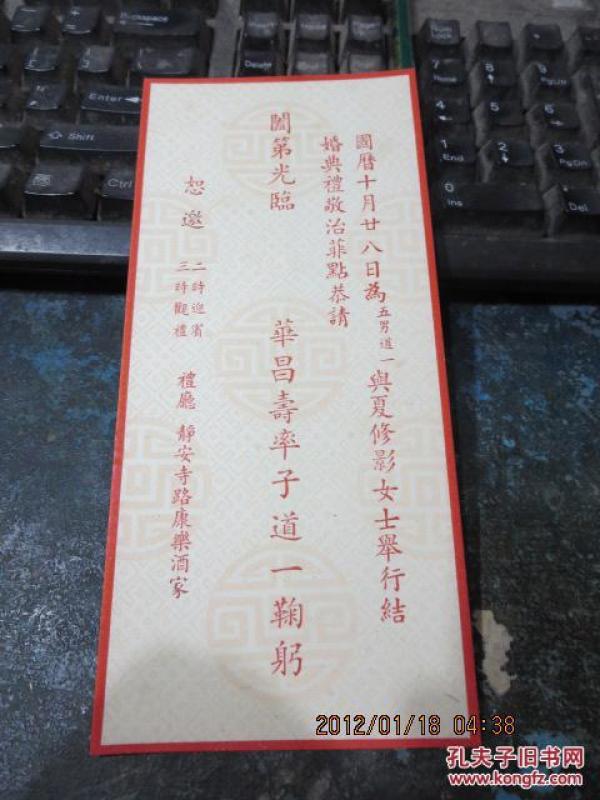 國曆十月廿八日為五男道一與夏修影女士舉行結
婚典禮敬治菲點恭請
闔第光臨
華昌壽率子道一鞠躬
恕邀
二時迎賓
三時觀禮
禮廳 靜安寺路康樂酒家
Enter
Shift
Ctrl
Backspace
7
Home
8
9
PgUp
4
5
6
1
End
2
3
PgDn
0
Ins
Del
2012/01/18 04:38
孔夫子旧书网
www.kongfz.com